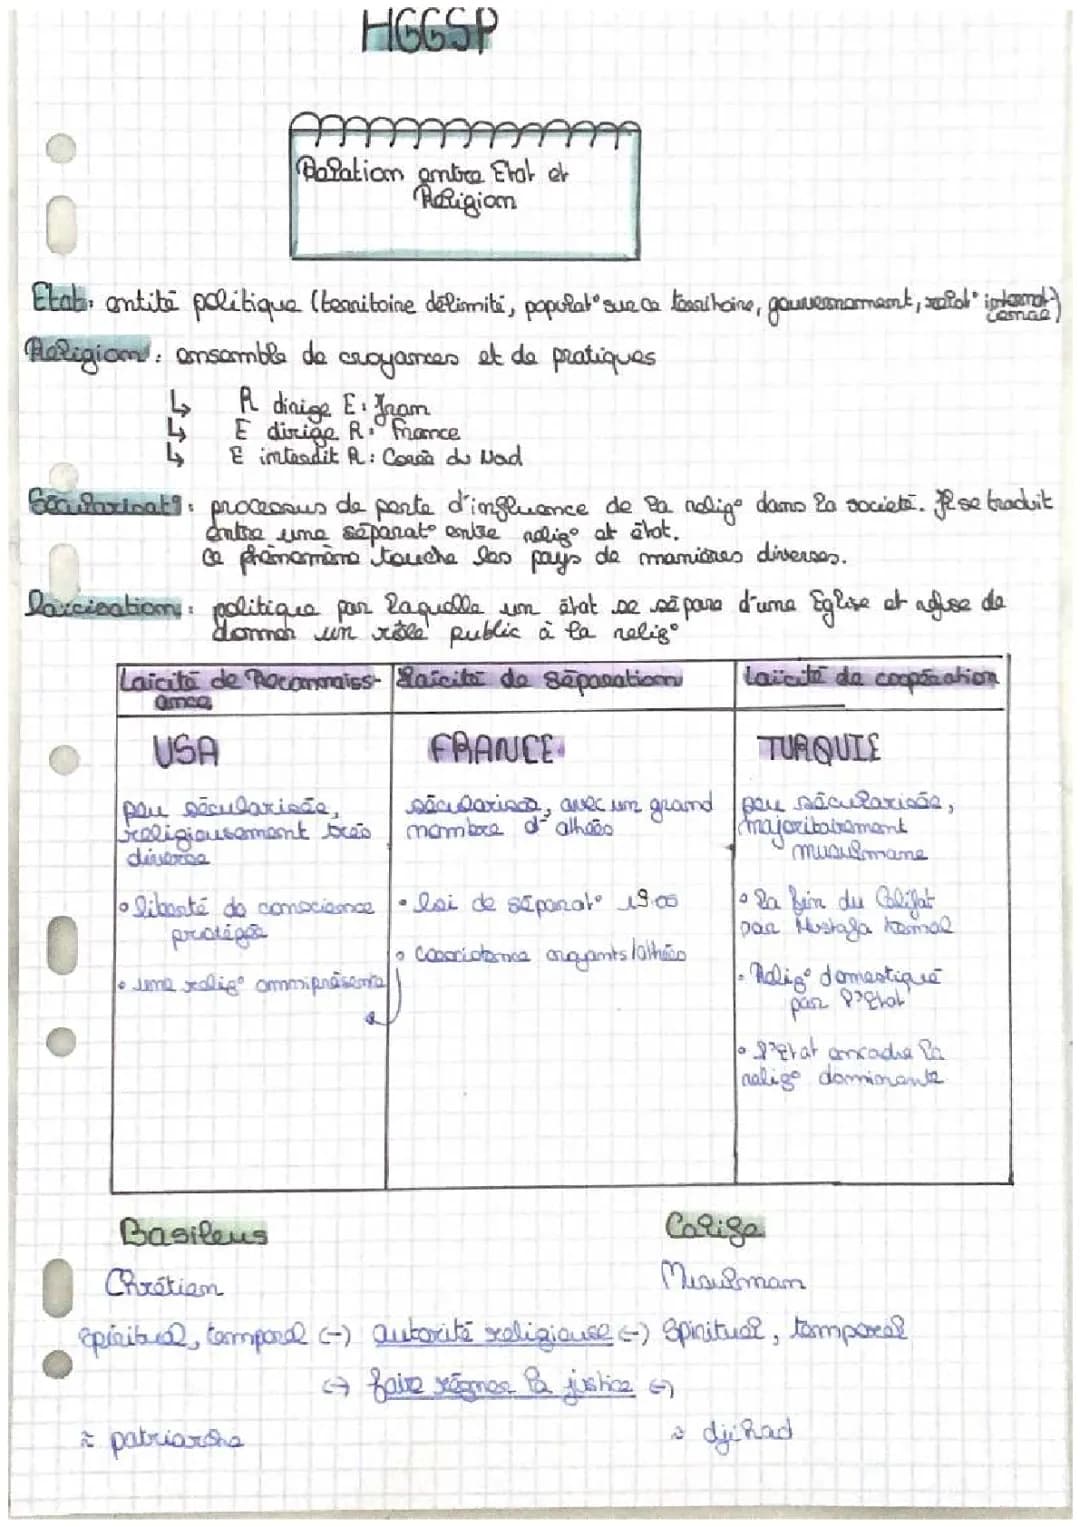 HGGSP
Relation entre Etat et
Religion
Etat: entité politique (territoire délimité, populat° sur ce territoire, gouvernement, relat°
Religion: ensemble de croyances et de pratiques
↳ R dirige E: Iran
↳ E dirige R: France
↳ E interdit R: Corée du Nord
Sécularisat°: processus de perte d'influence de la relig° dans la societé. Il se traduit
entre une séparat° entre relig° et état.
Ce phénomène touche les pays de manières diverses.
laïcisation: politique par laquelle un état se sépare d'une Eglise et refuse de
donner un rôle public à la relig°
Laïcité de Reconnaiss-
ance
Laïcité de séparation
Laïcité de coopération
USA
FRANCE
TURQUIE
peu sécularisée,
religieusement très
diverse
• liberté de conscience
protégée
• une relig° omniprésente
sécularisée, avec un grand
nombre d'athées
• loi de séparat° 1905
• Coexistence croyants/athées
peu sécularisée,
majoritairement
musulmane
• la fin du Califat
par Mustafa Kemal
• Relig° domestiquée
par l'Etat
• l'Etat encadre la
relig° dominante
Basileus
Calife
Chrétien
Musulman
Spirituel, temporel ↔ autorité religieuse ↔ Spirituel, temporel
↔ faire régner la justice ↔
≈ patriarche
≈ djihad